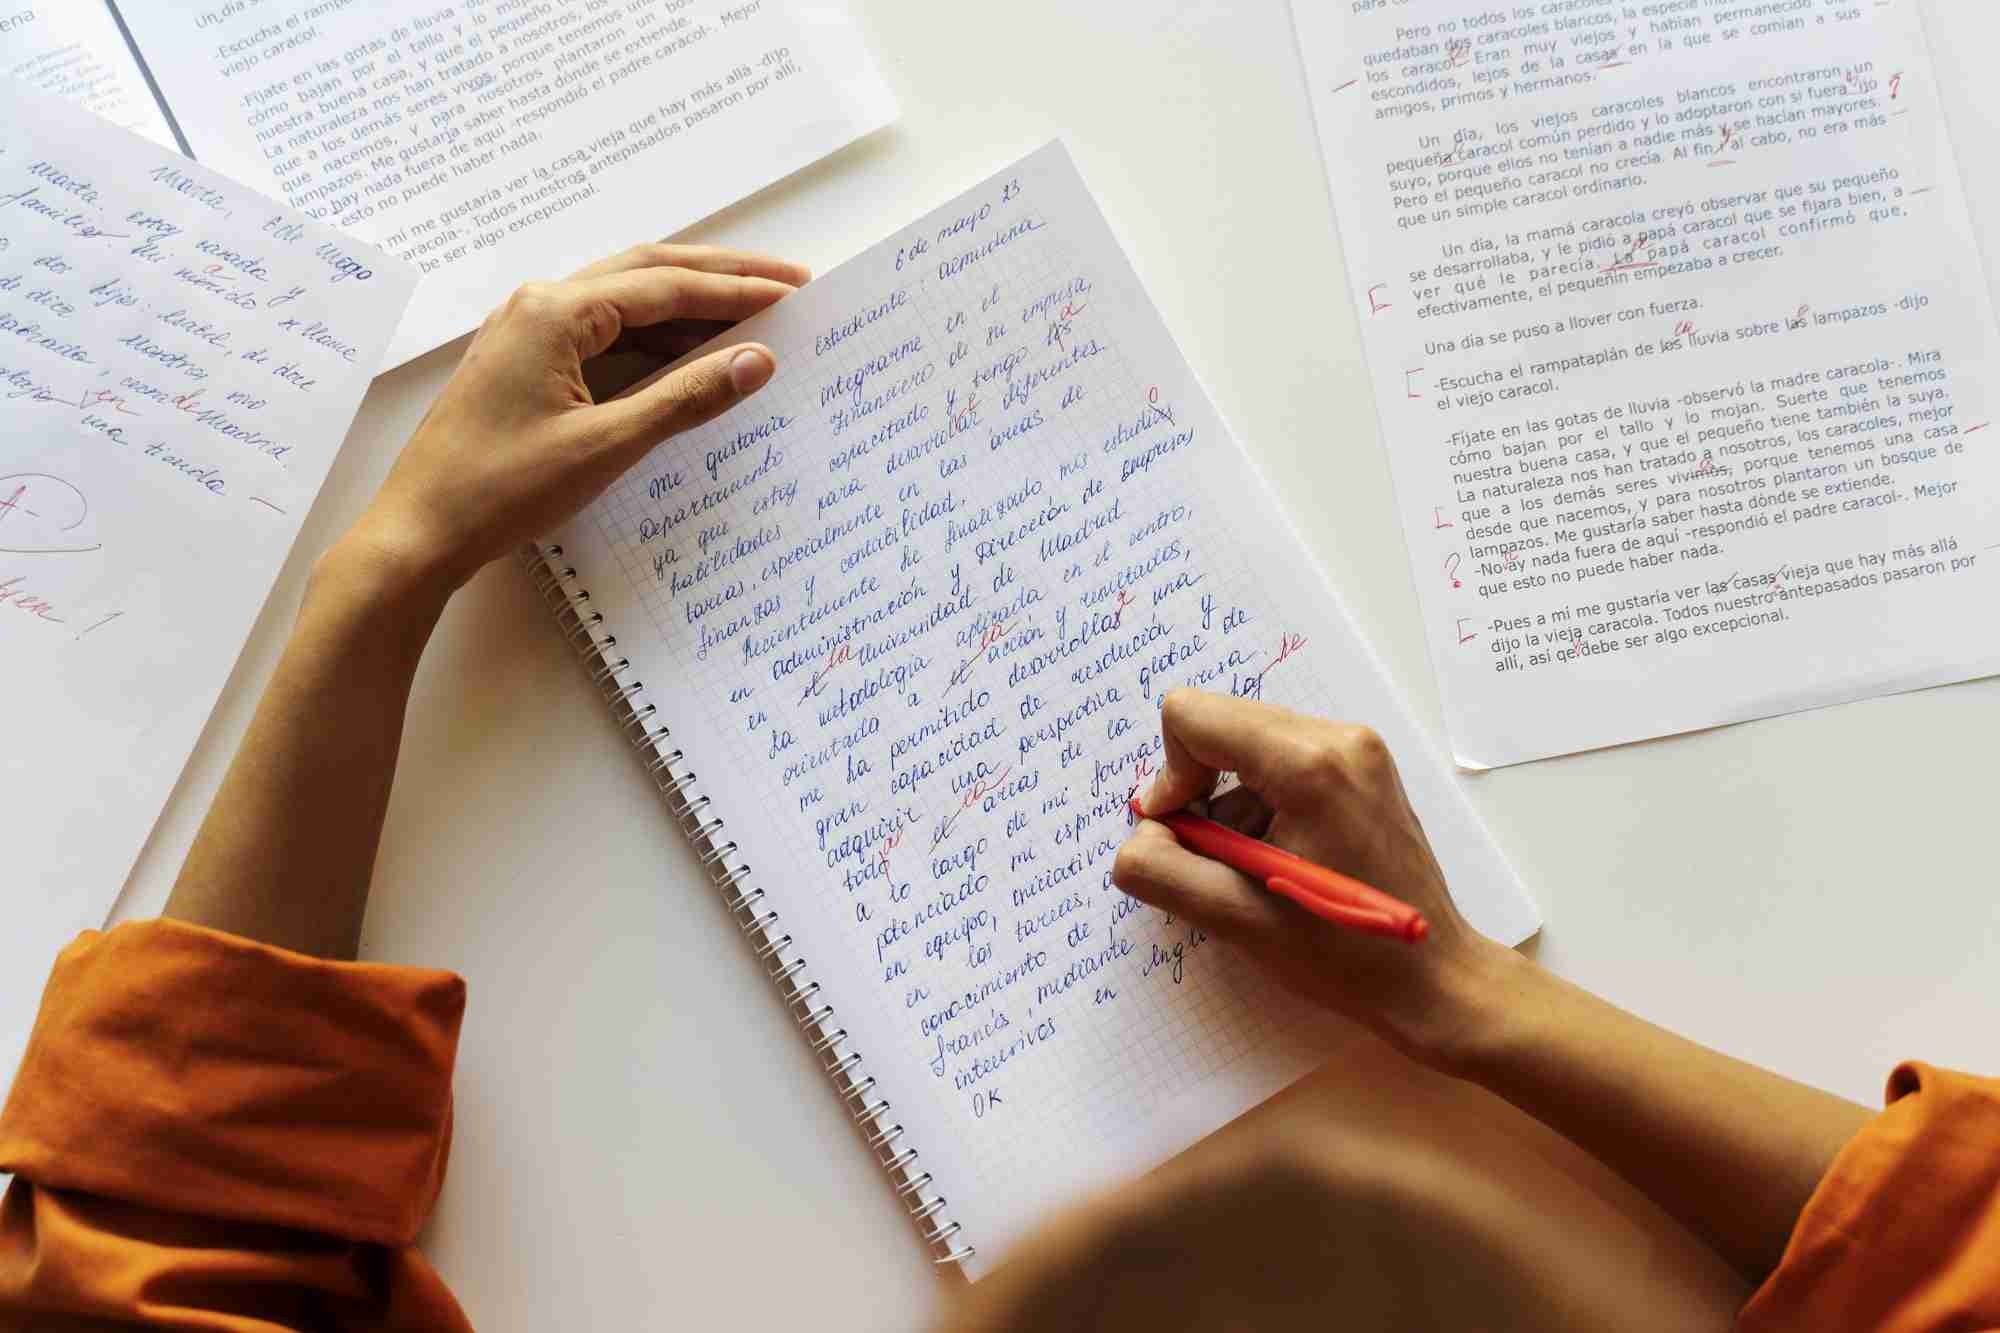 Un día se
-Escucha el rampa
viejo caracol.
-Fíjate en las gotas de lluvia -o
cómo bajan por el tallo y lo moja
nuestra buena casa, y que el pequeño tien
La naturaleza nos han tratado a nosotros, los
que a los demás seres vivos, porque tenemos una
que nacemos, y para nosotros plantaron un bos
lampazos. Me gustaría saber hasta dónde se extiende.
-No hay nada fuera de aquí -respondió el padre caracol-. Mejor
esto no puede haber nada.
mí me gustaría ver la casa vieja que hay más allá -dijo
aracola-. Todos nuestros antepasados pasaron por allí,
be ser algo excepcional.
Marta, Este Mogo
Marta. estoy casada y
familia. Mi marido se llama
a
dos hijos: Isabel, de doce
de diez. Nosotros vivi
cerca de Madrid.
trabaja en una tienda
A-
6 de mayo 23
Estudiante: Almudena
Me gustaría integrarme en el
Departamento Financiero de su empresa,
ya que estoy capacitado y tengo las
a
habiledades para desarrollar diferentes
tareas, especialmente en las áreas de
finanzas y contabilidad.
Recientemente he finalizado mis estudios
o
en administración y Dirección de Empresas
en el Universidad de Madrid.
la
La metodología aplicada en el centro,
orientada a el acción y resultados,
la
me ha permitido desarrollar una
gran capacidad de resolución y
adquirir una perspectiva global de
todo el areas de la empresa.
as
la
a lo largo de mi formac
hoy
he
potenciado mi espiritu
u
en equipo, iniciativa y
en las tareas, a
conocimiento de idi
francés, mediante e
intensivos en Inglé
OK
Pero no todos los caracoles
quedaban dos caracoles blancos, la especie más
los caracol Eran muy viejos y habían permanecido
escondidos, lejos de la casas en la que se comían a sus
amigos, primos y hermanos.
Un día, los viejos caracoles blancos encontraron un
pequeña caracol común perdido y lo adoptaron con si fuera ijo
?
suyo, porque ellos no tenían a nadie más y se hacían mayores.
Pero el pequeño caracol no crecía. Al fin y al cabo, no era más
que un simple caracol ordinario.
Un día, la mamá caracola creyó observar que su pequeño
se desarrollaba, y le pidió a papá caracol que se fijara bien, a
ver qué le parecía. La papá caracol confirmó que,
efectivamente, el pequeñín empezaba a crecer.
Una día se puso a llover con fuerza.
-Escucha el rampataplán de los lluvia sobre las lampazos -dijo
la
el viejo caracol.
-Fíjate en las gotas de lluvia -observó la madre caracola-. Mira
cómo bajan por el tallo y lo mojan. Suerte que tenemos
nuestra buena casa, y que el pequeño tiene también la suya.
La naturaleza nos han tratado a nosotros, los caracoles, mejor
que a los demás seres vivimos, porque tenemos una casa
desde que nacemos, y para nosotros plantaron un bosque de
lampazos. Me gustaría saber hasta dónde se extiende.
?
-No ay nada fuera de aquí -respondió el padre caracol-. Mejor
que esto no puede haber nada.
-Pues a mí me gustaría ver las casas vieja que hay más allá
dijo la vieja caracola. Todos nuestro antepasados pasaron por
allí, así qe debe ser algo excepcional.